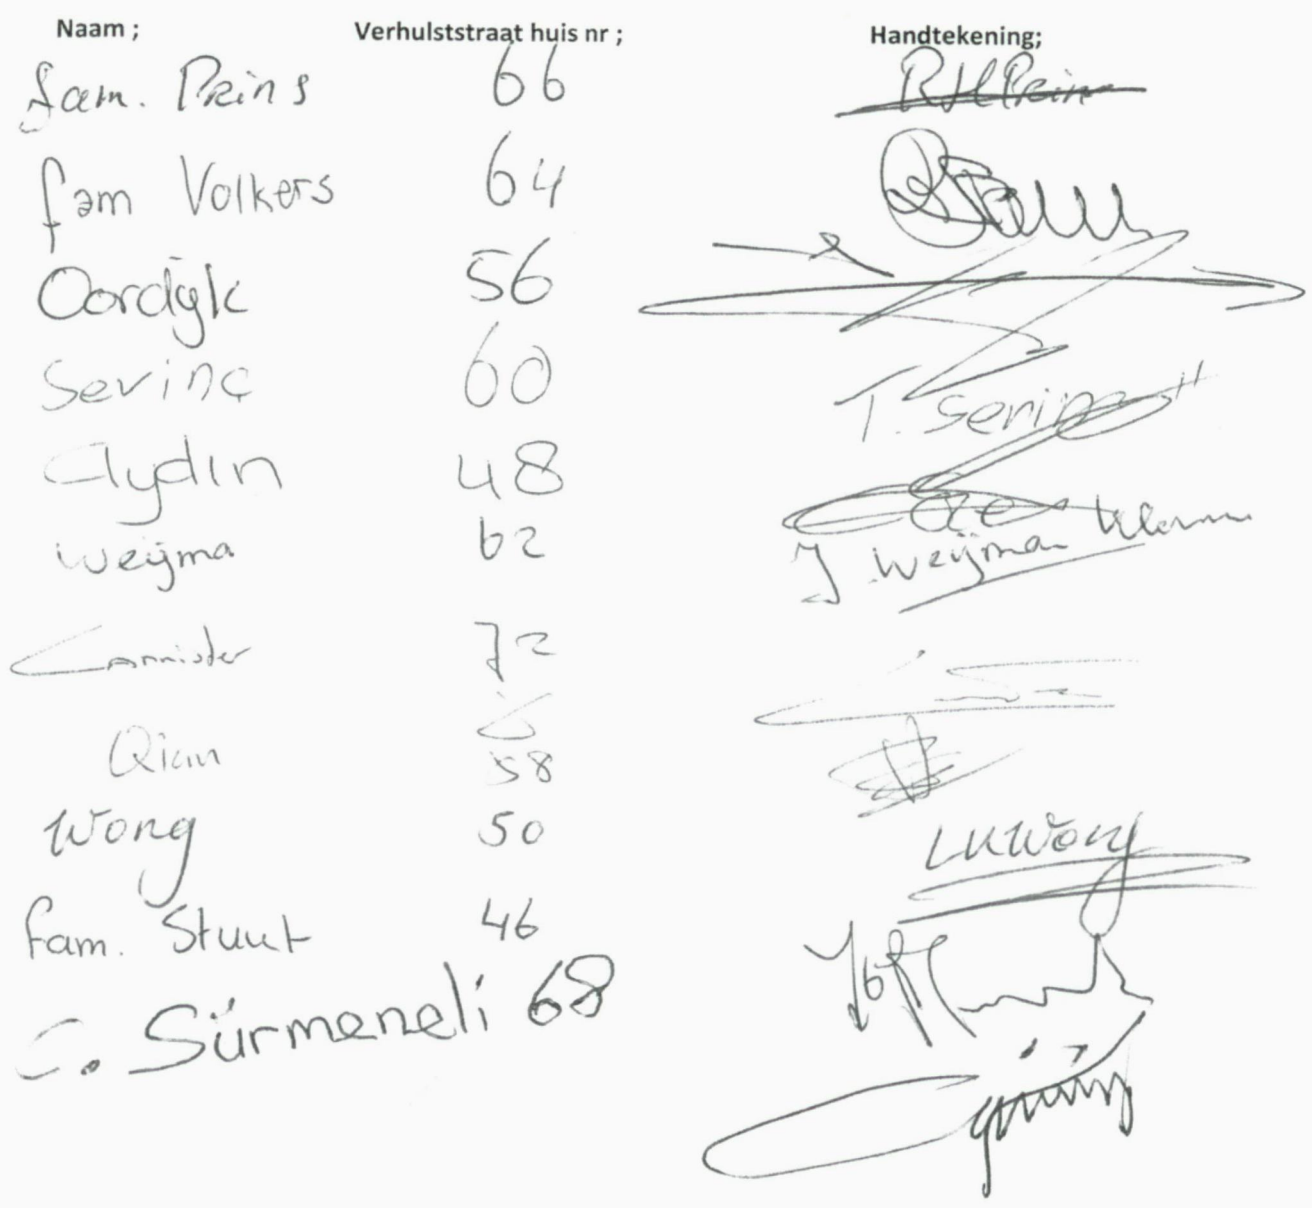 Naam ; Verhulststraat huis nr ; Handtekening;
fam. Prins 66 RHPrins
fam Volkers 64
Oordijk 56
Sevinç 60 T. Sevinç
Aydın 48
Weijma 62 J. Weijma
Cannister 72
Qian 58
Wong 50 LKWong
fam. Stuut 46
C. Sürmeneli 68